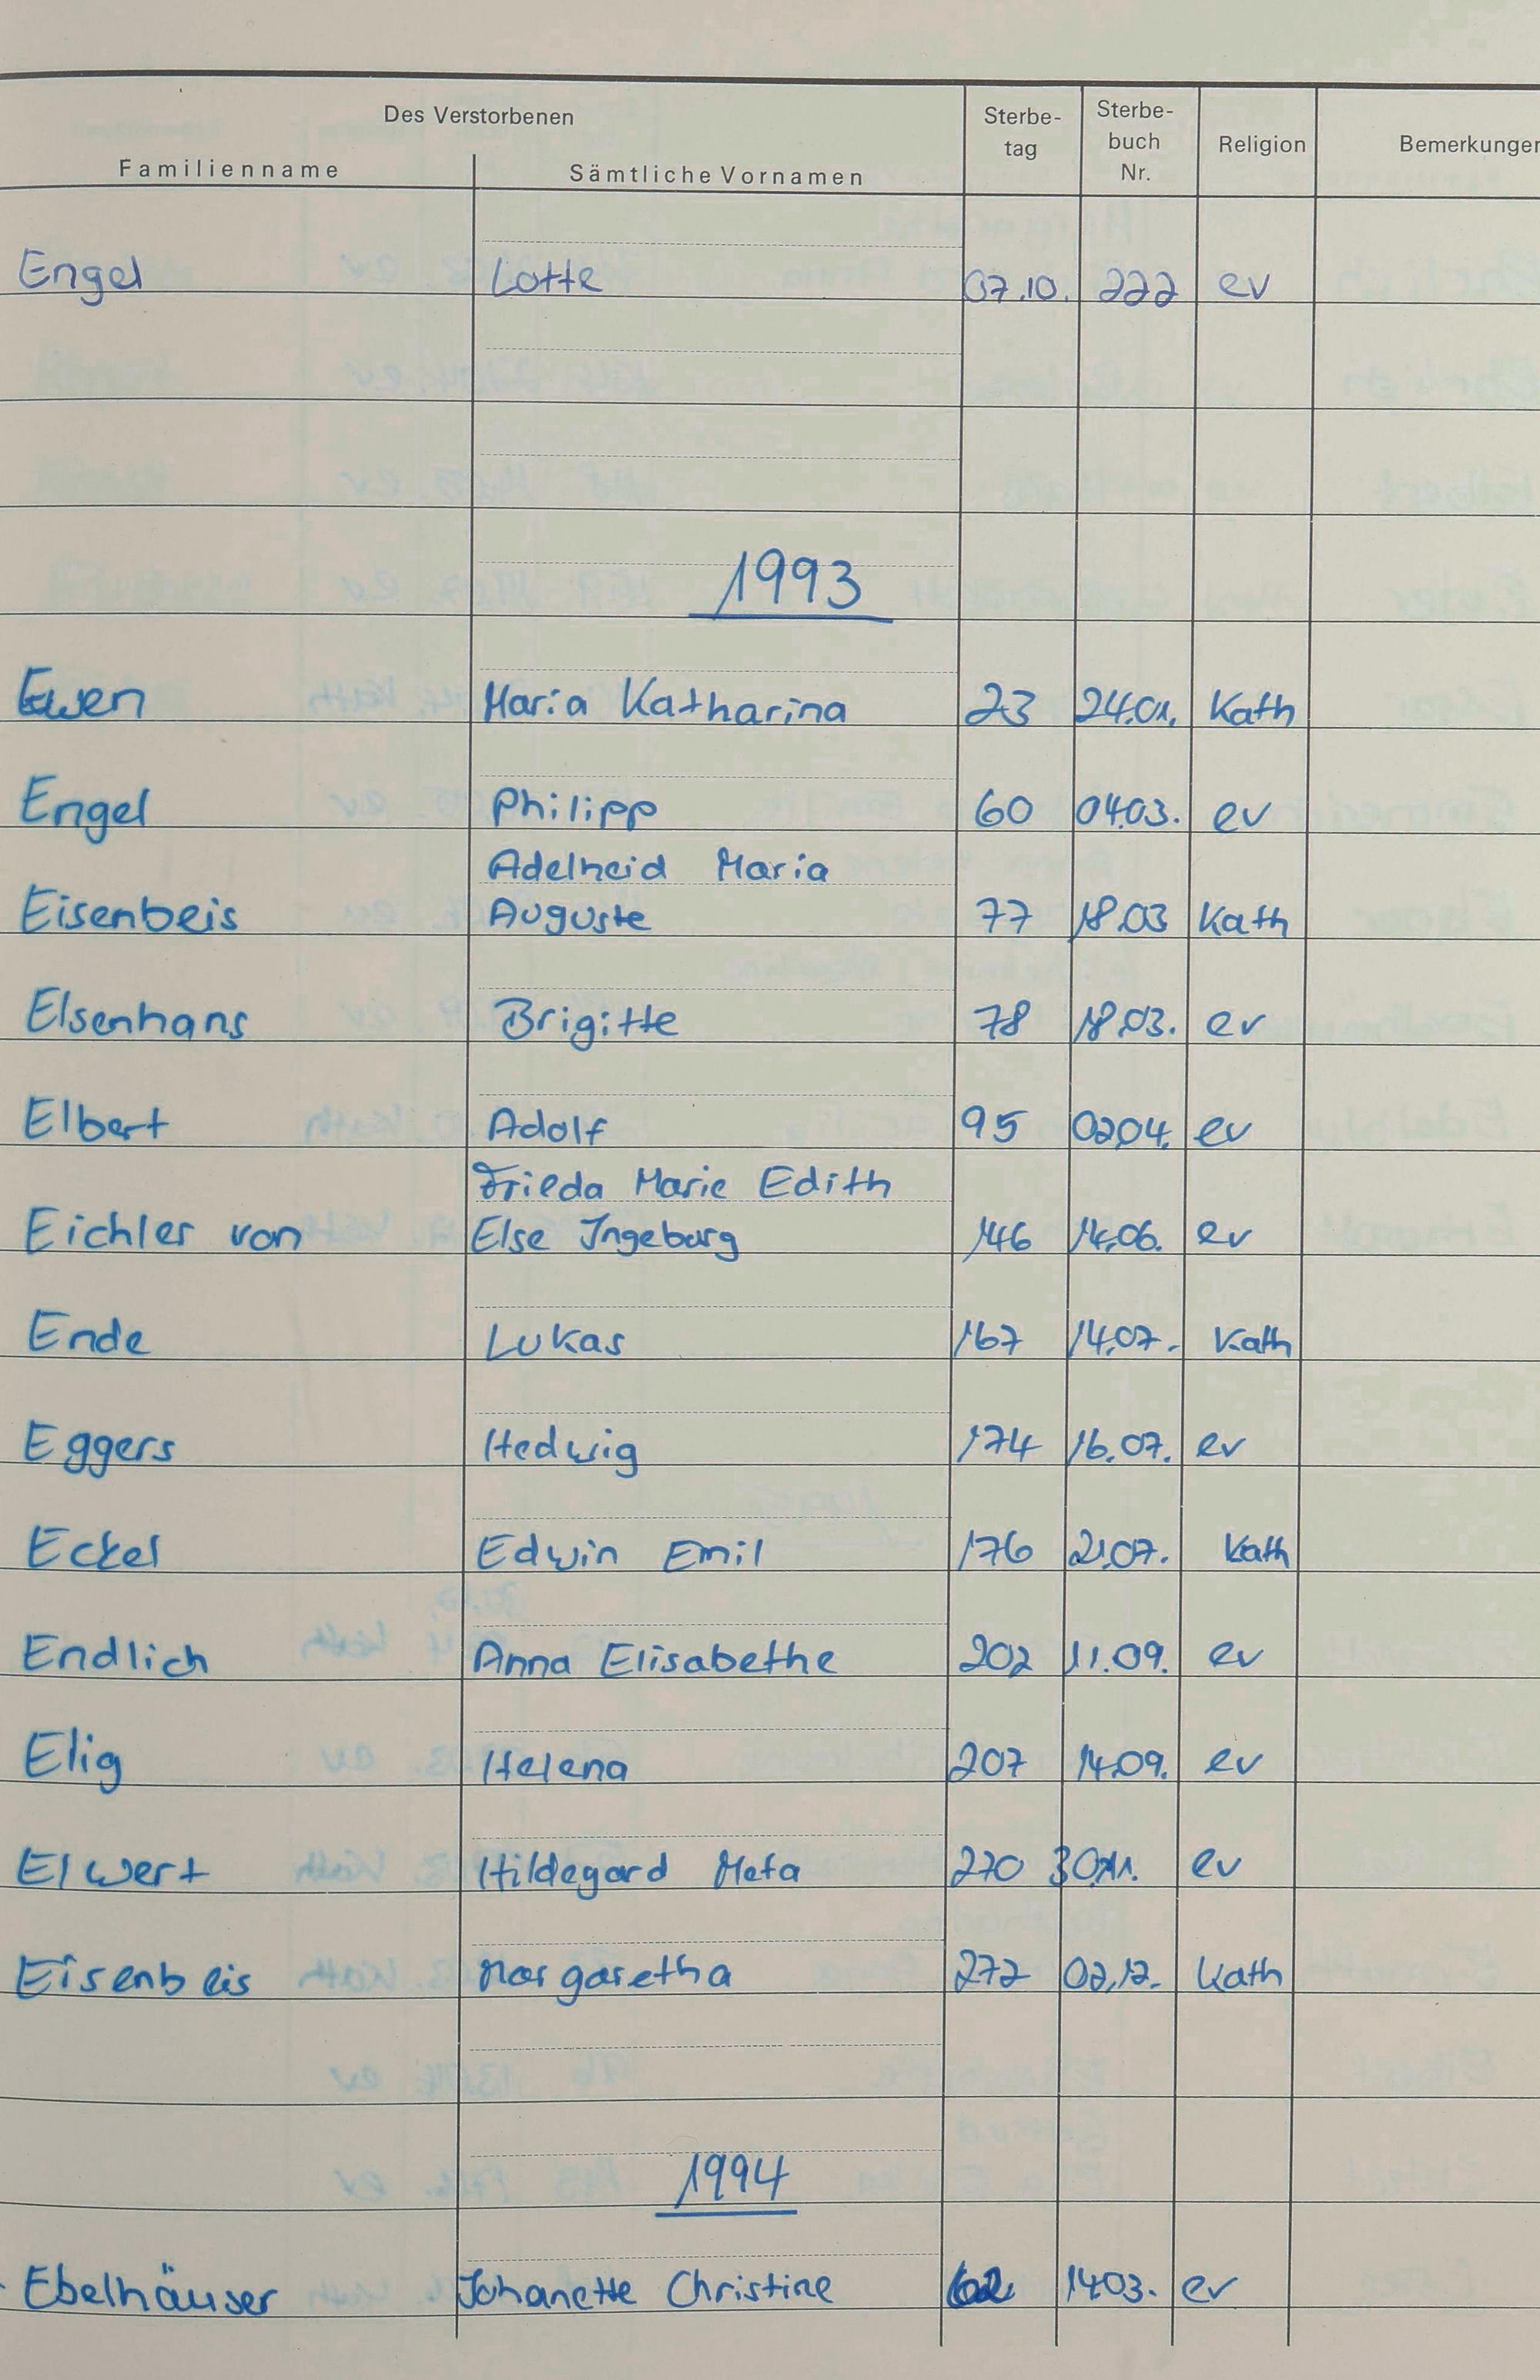 Des Verstorbenen
Familienname Sämtliche Vornamen Sterbe-
tag Sterbe-
buch
Nr. Religion Bemerkungen
Engel Lotte 07.10. 222 ev
1993
Ewen Maria Katharina 23 24.01. Kath
Engel Philipp 60 04.03. ev
Adelheid Maria
Eisenbeis Auguste 77 18.03 Kath
Elsenhans Brigitte 78 18.03. ev
Elbert Adolf 95 02.04. ev
Frieda Marie Edith
Eichler von Else Ingeborg 146 14.06. ev
Ende Lukas 167 14.07. Kath
Eggers Hedwig 174 16.07. ev
Eckel Edwin Emil 176 21.07. Kath
Endlich Anna Elisabethe 202 11.09. ev
Elig Helena 207 14.09. ev
Elwert Hildegard Meta 270 30.11. ev
Eisenbeis Margaretha 272 02.12. Kath
1994
Ebelhäuser Johanette Christine 62 14.03. ev